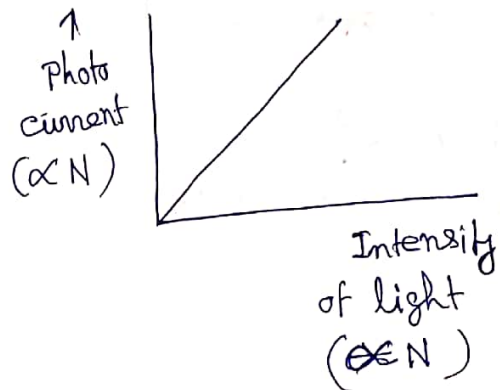 ↑
Photo
current
(∝ N)
Intensity
of light
(∝ N)